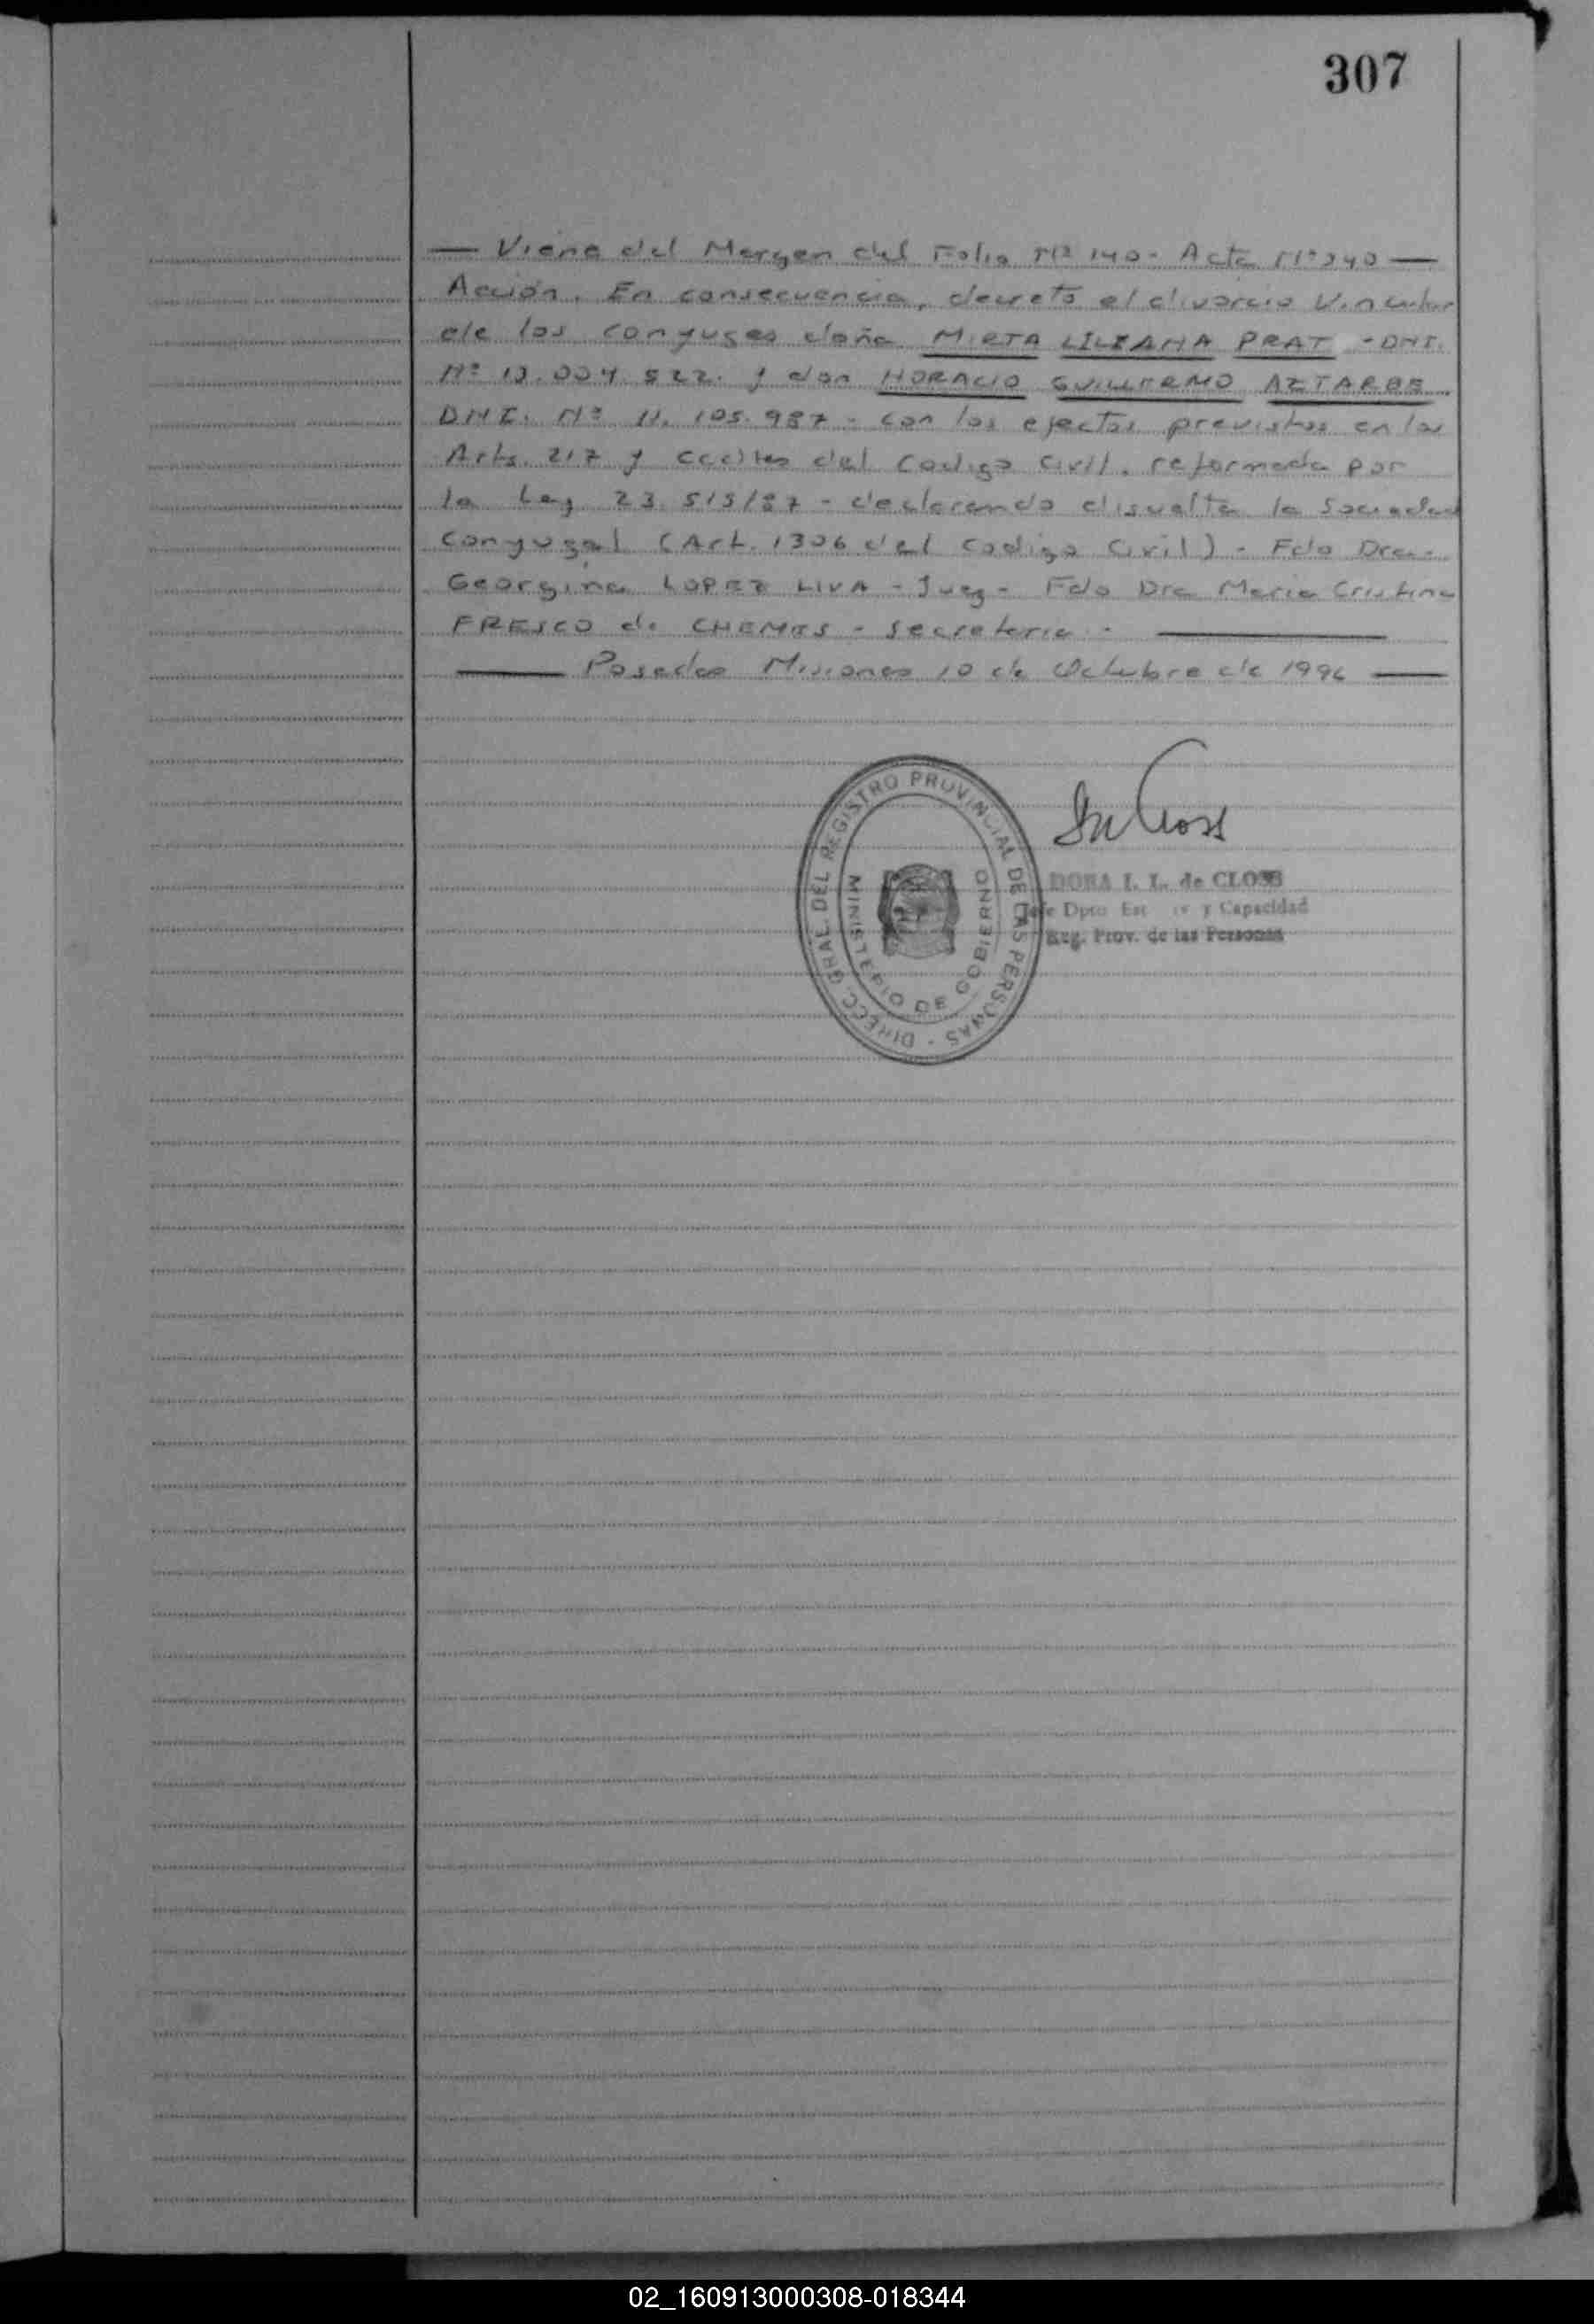 307
— Viene del Margen del Folio Nº 140 - Acta Nº 240 —
Acción. En consecuencia, decreto el divorcio Vincular
de los conyuges doña MIRTA LILIANA PRAT - DNI.
Nº .004.522. y don HORACIO GUILLERMO AZTARBE
DNI. Nº 11.105.987 - con los efectos previstos en los
Arts. 217 y ccdtes del Codigo Civil. reformada por
la Ley 23.515/87 - declarando disuelta la Sociedad
Conyugal (Art. 1306 del Codigo Civil) - Fdo Dra.-
Georgina LOPEZ LIVA - Juez - Fdo Dra Maria Cristina
FRESCO de CHEMES - Secretaria -
— Posadas Misiones 10 de Octubre de 1996 —
DIRECC. GRAL. DEL REGISTRO PROVINCIAL DE LAS PERSONAS -
MINISTERIO DE GOBIERNO
DORA I. L. de CLOSS
Jefe Dpto y Capacidad
Reg. Prov. de las Personas
02_160913000308-018344